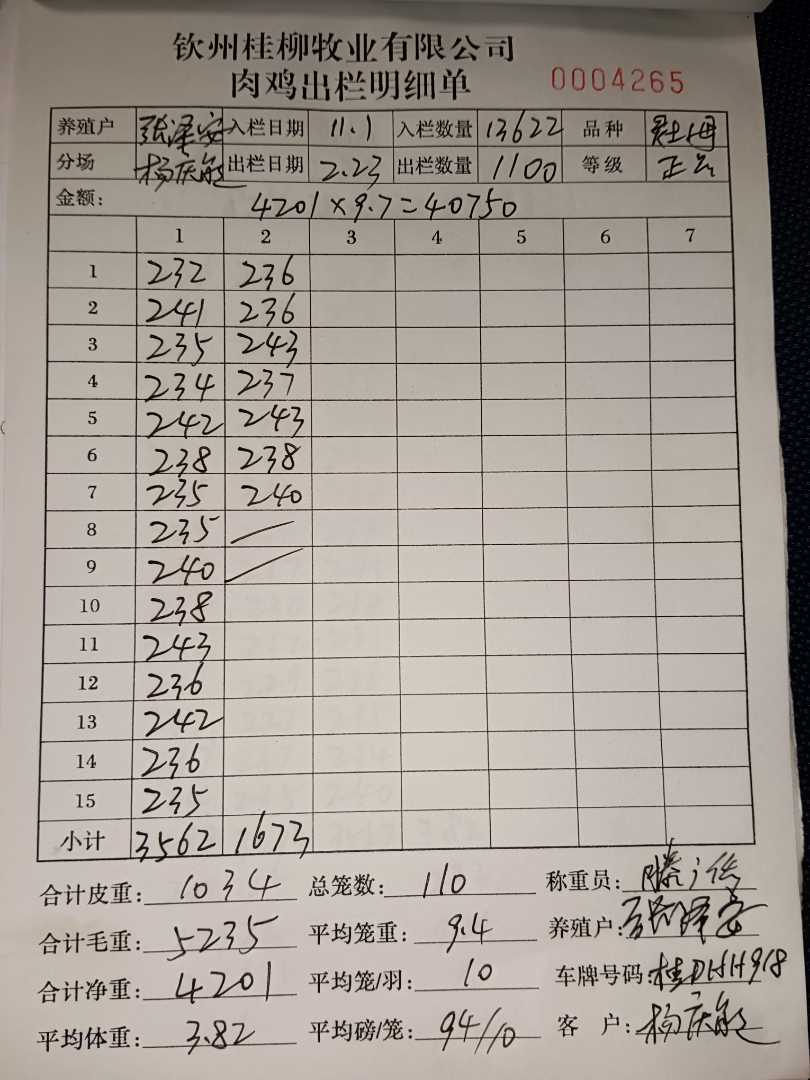 钦州桂柳牧业有限公司
肉鸡出栏明细单 0004265
养殖户 张泽安 入栏日期 11.1 入栏数量 13622 品种
分场 杨庆能 出栏日期 2.23 出栏数量 1100 等级
金额: 4201×9.7=40750
1 2 3 4 5 6 7
1 232 236
2 241 236
3 235 243
4 234 237
5 242 243
6 238 238
7 235 240
8 235 —
9 240 —
10 238
11 243
12 236
13 242
14 236
15 235
小计 3562 1673
合计皮重: 1034 总笼数: 110 称重员:
合计毛重: 5235 平均笼重: 9.4 养殖户: 张泽安
合计净重: 4201 平均笼/羽: 10 车牌号码: 桂DHH918
平均体重: 3.82 平均磅/笼: 94/10 客 户: 杨庆能